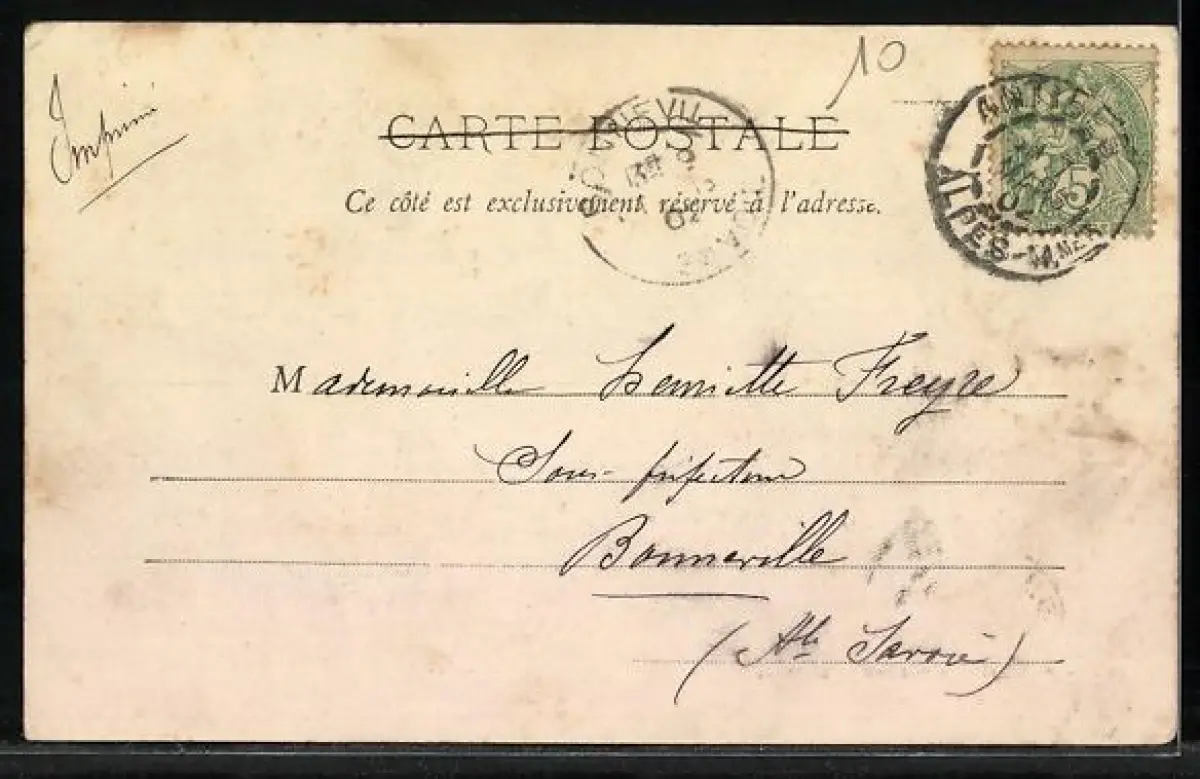 10
Imprimé
CARTE POSTALE
Ce côté est exclusivement réservé à l'adresse.
BONNEVIL
02
ANTIB
ALPES-MMES
02
5
Mademoiselle Henriette Freyre
Sous-préfecture
Bonneville
(Hte Savoie)